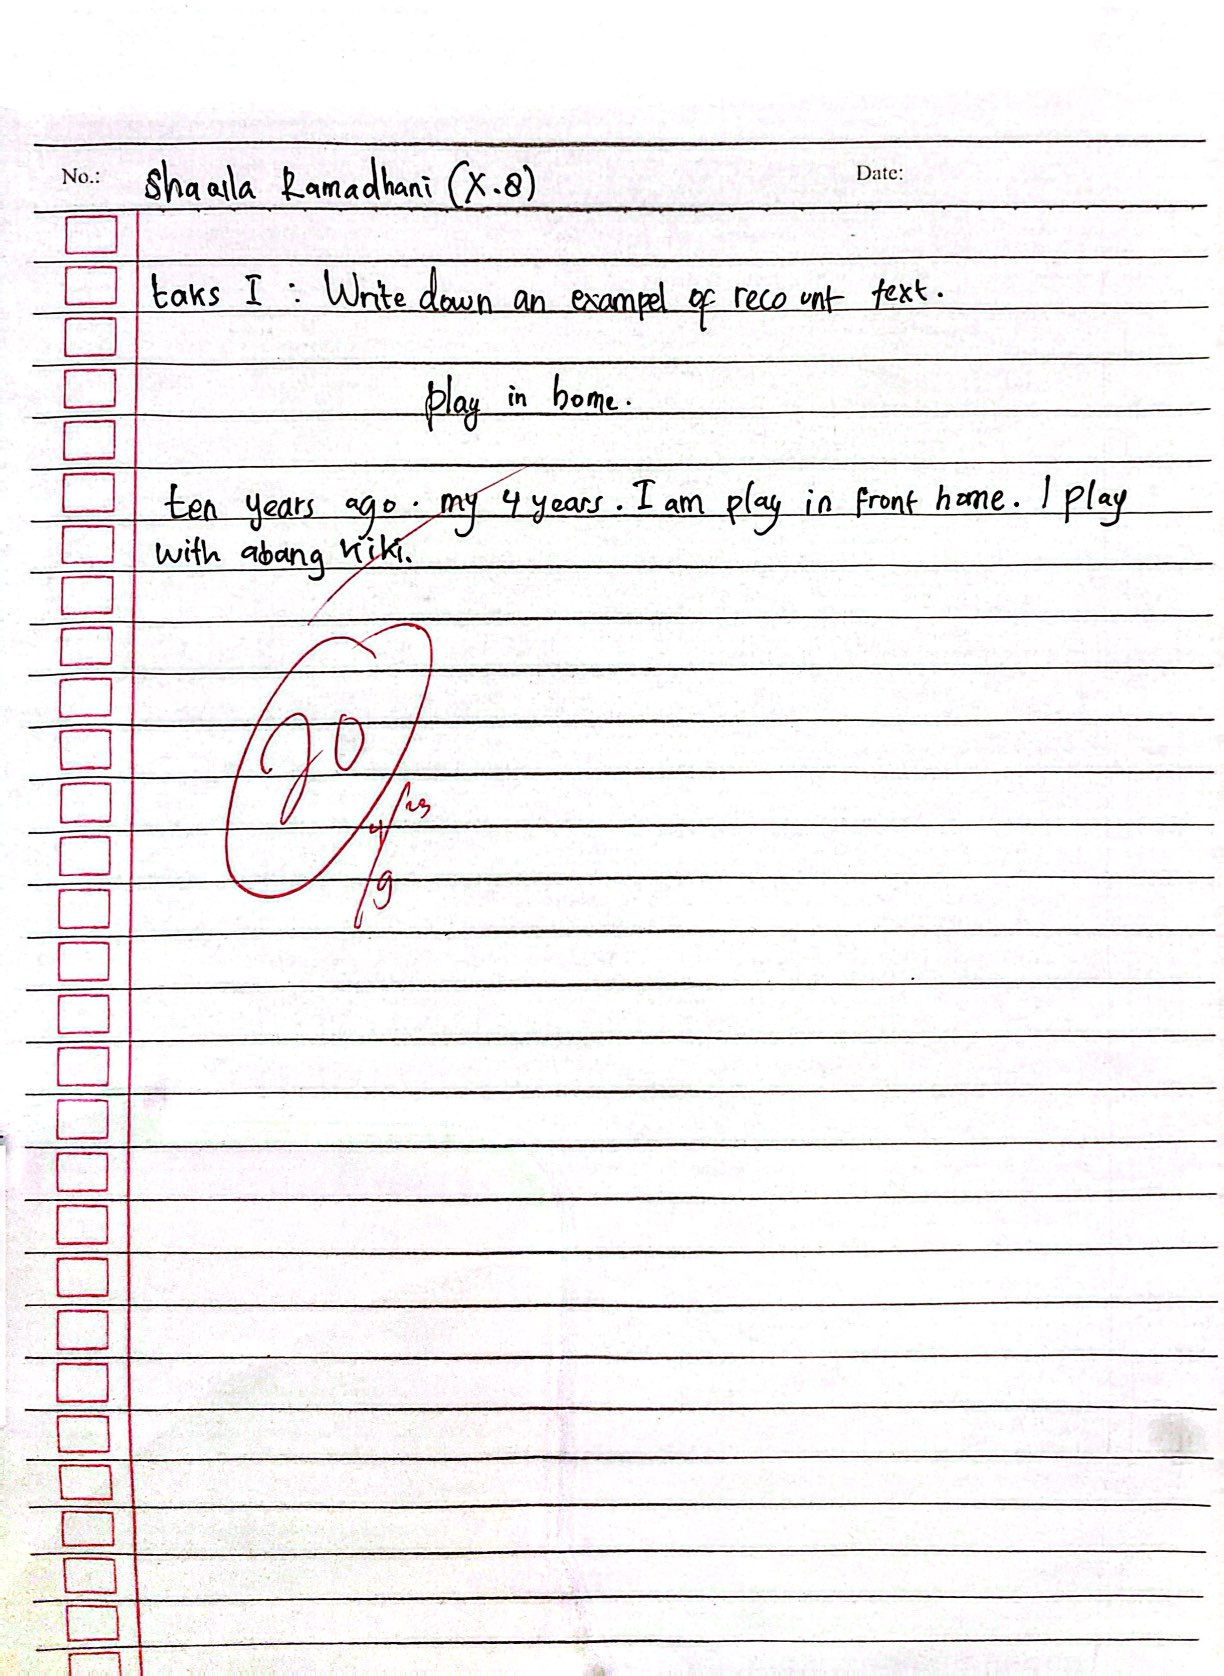 No.: Shaaila Ramadhani (X.8) Date:
taks I : Write down an exampel of recount text.
play in home.
ten years ago. my 4 years. I am play in front home. I play
with abang kiki.
70
4/9